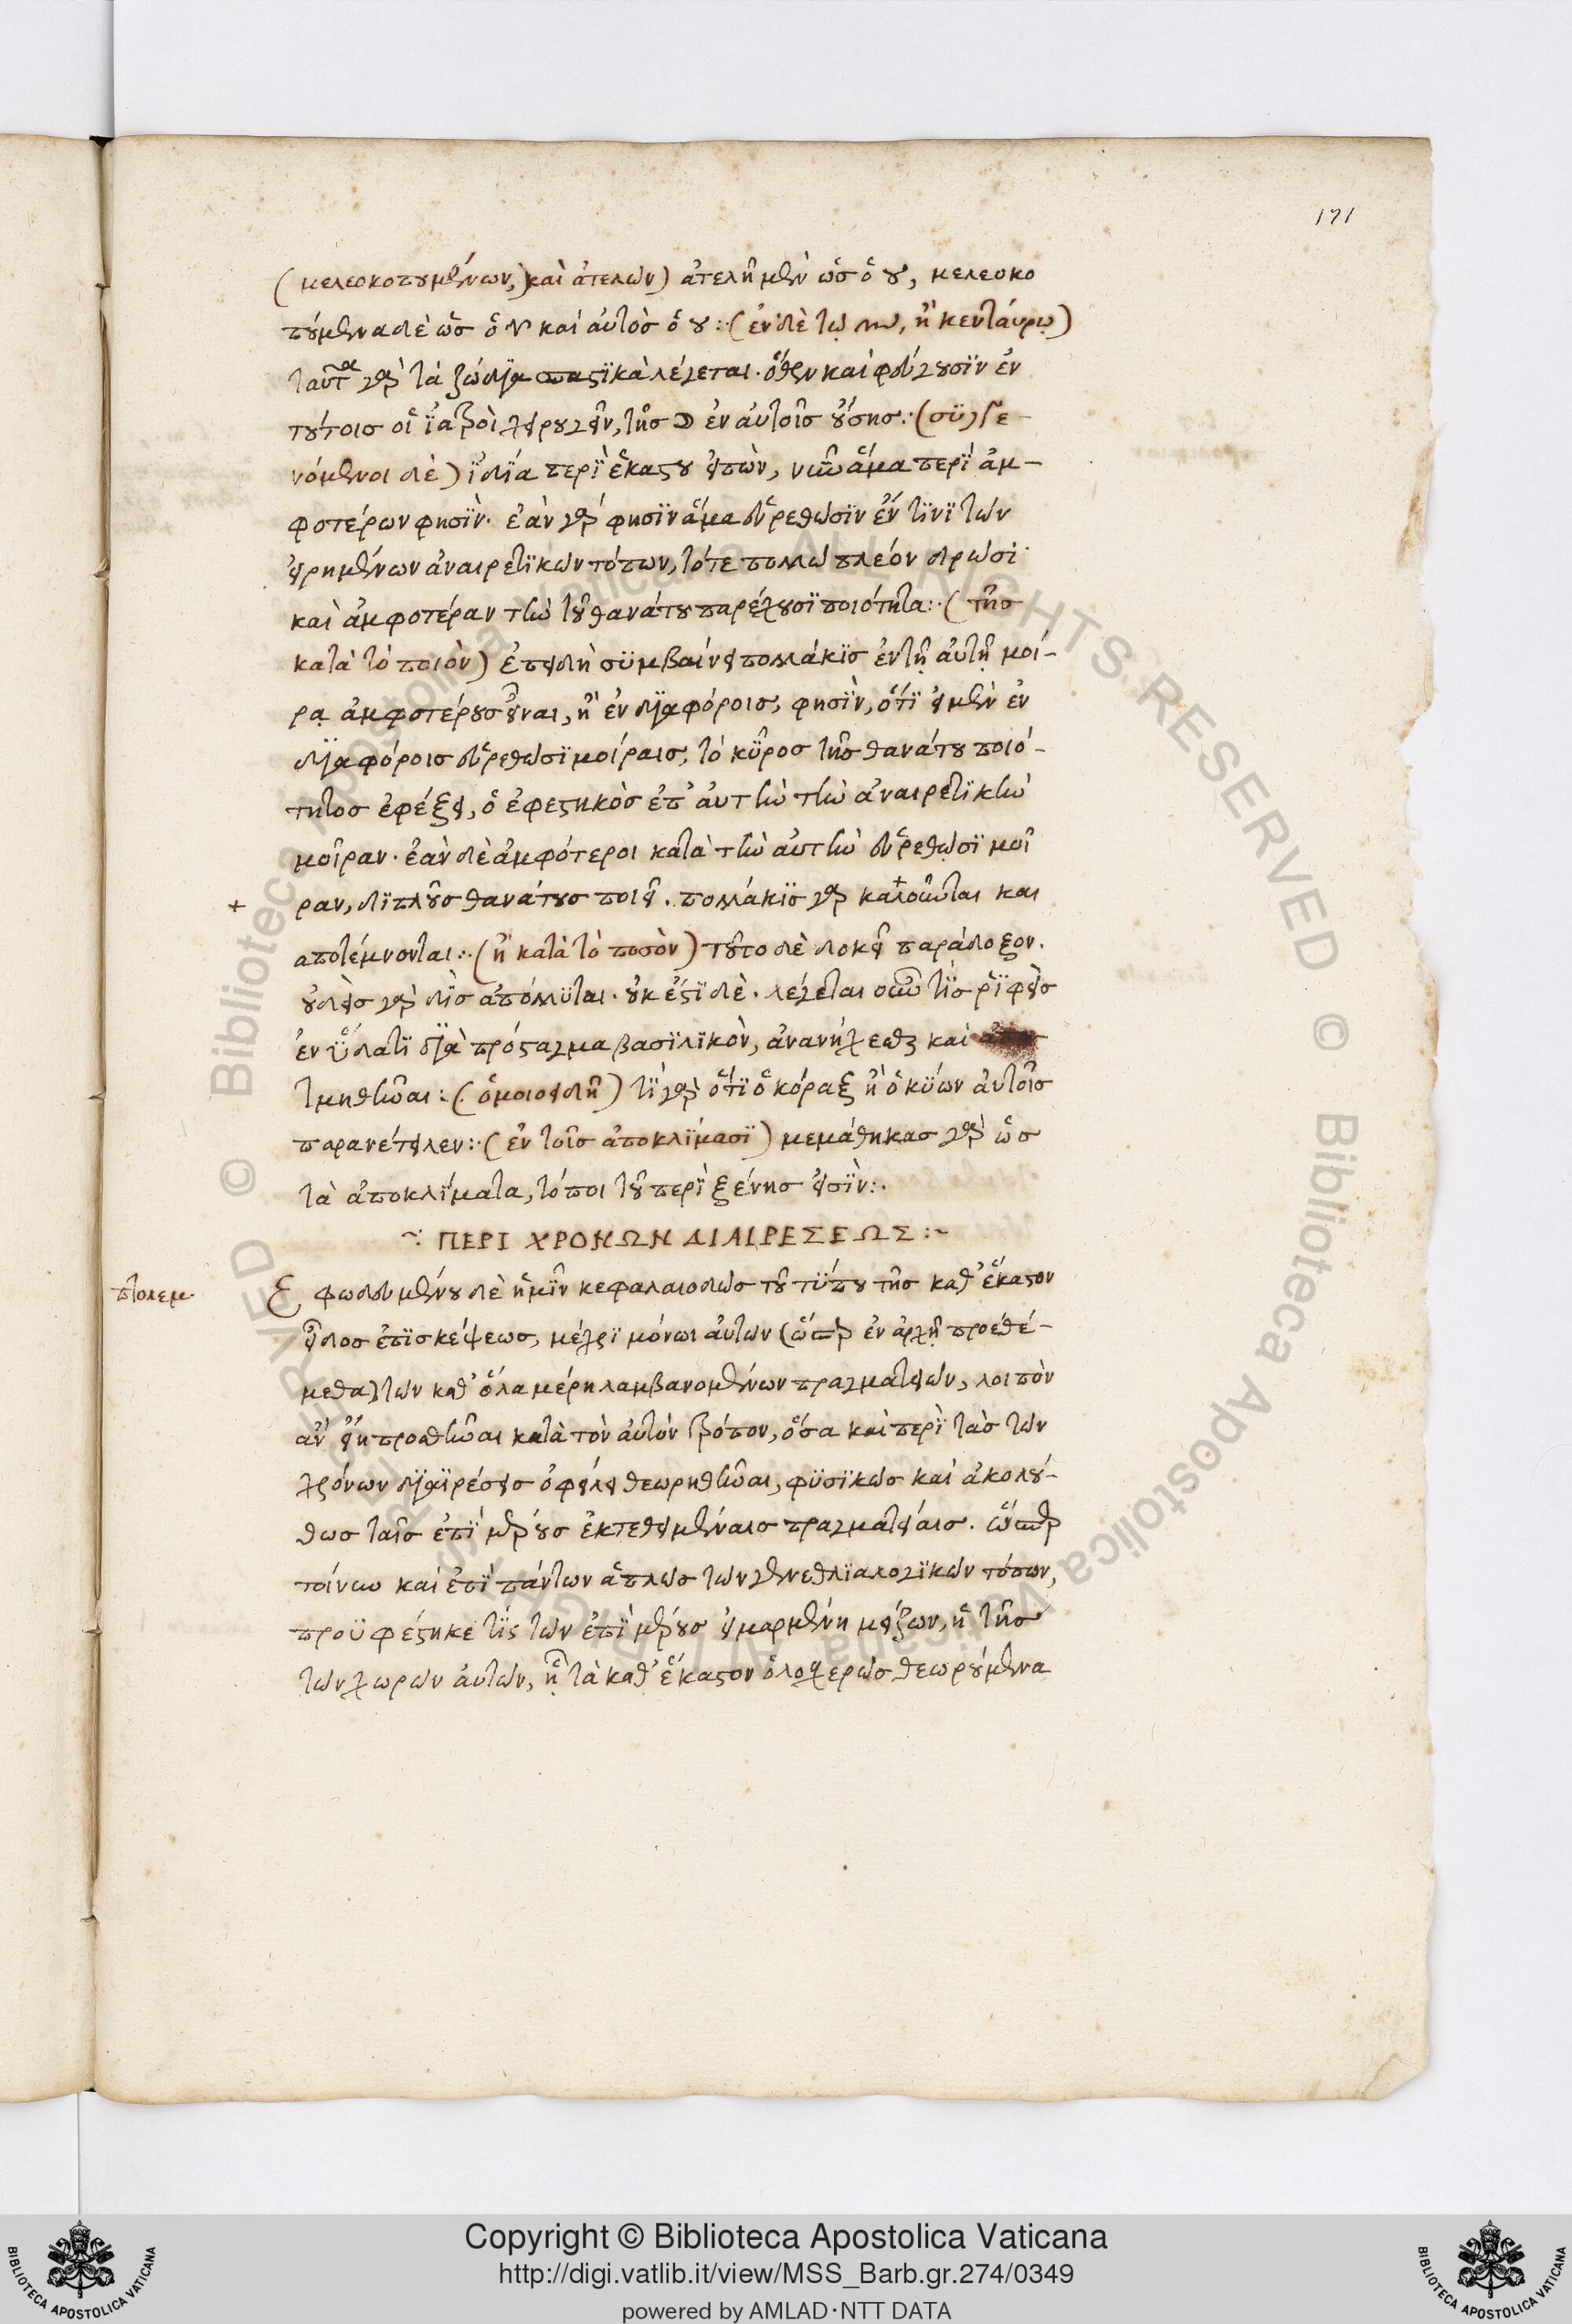 171
(μελεοκοπουμένων,) καὶ ἀτελῶν) ἀτελῆ μὲν ὡς ὁ ♉, μελεοκο
πούμενα δὲ ὡς ὁ ♈ καὶ αὐτὸς ὁ ♉ :· (ἐν δὲ τῷ ♏, ἢ κενταύρῳ)
ταῦτα γὰρ τὰ ζώδϊα παθϊκὰ λέγεται · ὅθεν καὶ φεύγουσϊν ἐν
τούτοις οἱ ἰατροὶ χειρουργεῖν, τῆς ☽ ἐν αὐτοῖς οὔσης :· (συγγε-
νόμενοι δὲ) ἰδίᾳ περὶ ἑκάστου εἰπὼν, νῦν ἅμα περὶ ἀμ-
φοτέρων φησὶν · ἐὰν γάρ φησϊν ἅμα εὑρεθῶσϊν ἔν τϊνϊ τῶν
εἰρημένων ἀναιρετϊκῶν τόπων, τότε πολλῷ πλέον δρῶσί ·
καὶ ἀμφοτέραν τὴν τοῦ θανάτου παρέχουσϊ ποιότητα :· (τῆς
κατὰ τὸ ποιὸν) ἐπειδὴ συμβαίνει πολλάκϊς ἐν τῇ αὐτῇ μοί-
ρᾳ ἀμφοτέρους εἶναι, ἢ ἐν δϊαφόροις, φησὶν, ὅτϊ εἰ μὲν ἐν
δϊαφόροις εὑρεθῶσϊ μοίραις, τὸ κῦρος τῆς θανάτου ποιό-
τητος ἐφέξει, ὁ ἐφεστηκὸς ἐπ' αὐτὴν τὴν ἀναιρετϊκὴν
μοῖραν · ἐὰν δὲ ἀμφότεροι κατὰ τὴν αὐτὴν εὑρεθῶσϊ μοῖ
+ ραν, διπλοῦς θανάτους ποιεῖ · πολλάκϊς γὰρ καίονται και
αποτέμνονται :· (ἢ κατὰ τὸ ποσὸν) τοῦτο δὲ δοκεῖ παράδοξον.
οὐδεὶς γὰρ δὶς ἀπόλλυται · οὐκ ἔστϊ δὲ · λέγεται οὖν τὶς ῥϊφεὶς
ἐν ὕδατϊ δϊὰ πρόσταγμα βασϊλϊκὸν, ἀνανήχεσθαι καὶ
τμηθῆναι :· (ὁμοιοειδῆ) τί γὰρ ὅτϊ ὁ κόραξ ἢ ὁ κύων αὐτοῖς
παρανέτειλεν :· (ἐν τοῖς ἀποκλίμασϊ) μεμάθηκας γὰρ ὡς
τὰ ἀποκλίματα, τόποι τοῦ περὶ ξένης εἰσὶν :·
~: ΠΕΡΙ ΧΡΟΝΩΝ ΔΙΑΙΡΕΣΕΩΣ :~
πτολεμ. Ἐφωδευμένου δὲ ἡμῖν κεφαλαιοδῶς τοῦ τύπου τῆς καθ' ἕκαστον
εἶδος ἐπισκέψεως, μέχρϊ μόνων αὐτῶν (ὥσπερ ἐν ἀρχῇ προεθέ-
μεθα) τῶν καθ' ὅλα μέρη λαμβανομένων πραγματειῶν, λοιπὸν
ἂν εἴη προσθεῖναι κατὰ τὸν αὐτὸν τρόπον, ὅσα καὶ περὶ τὰς τῶν
χρόνων δϊαϊρέσεις ὀφείλει θεωρηθῆναι, φυσϊκῶς καὶ ἀκολού-
θως ταῖς ἐπὶ μέρους ἐκτεθειμέναις πραγματείαις. ὥσπερ
τοίνυν καὶ ἐπὶ πάντων ἁπλῶς τῶν γενεθλϊαλογϊκῶν τόπων,
προϋφέστηκέ τϊς τῶν ἐπὶ μέρους εἱμαρμένη μείζων, ἡ τῆς
τῶν χωρῶν αὐτῶν, ᾗ τὰ καθ' ἕκαστον ὁλοσχερῶς θεωρούμενα
Copyright © Biblioteca Apostolica Vaticana
http://digi.vatlib.it/view/MSS_Barb.gr.274/0349
powered by AMLAD·NTT DATA